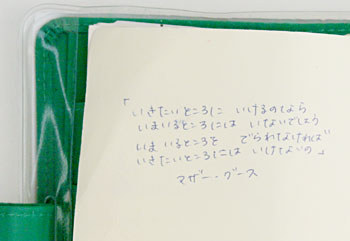 「いきたいところに いけるのなら
いまいるところには いないでしょう
いま いるところを でられなければ
いきたいところには いけないの」
マザー・グース